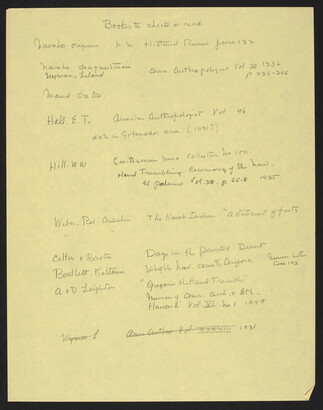 Books to check or read
Navaho origins N. M. Historical Review June 132
Navaho diagnostician
Wyman, Leland Am Anthropologist Vol 38 1936
p 236-246
Maud Oakes
Hall, E.T. American Anthropologist Vol 46
date in Gobernador area (1937)
Hill, W.W. Smithsonian Misc Collection No 100
Hand Trembling Ceremony of the Nav.
El Palacio Vol. 38. p. 65-8 1935
The Navaho Indian "A statement of facts
" "
Colton & Baxter Days in the Painted Desert
Bartlett, Katharine Why the Nav. came to Arizona Museum Notes
A & D Leighton "Gregorio the Hand Trembler"
Museum of Amer. Arch. & Eth.
Harvard Vol XL No 1 1949
Wyman, L Am Anthro Vol XXXVIII 1936